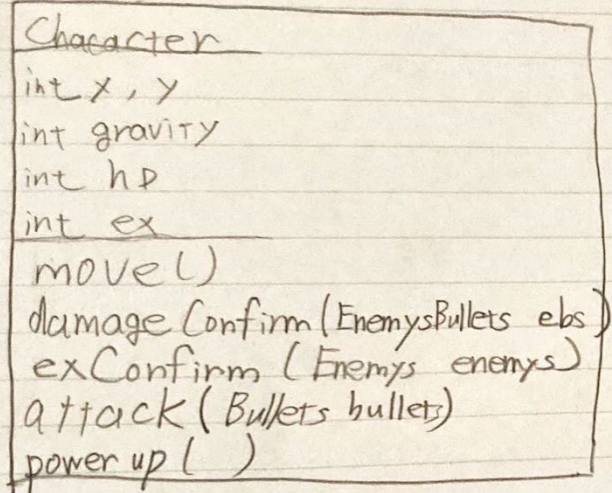 Chacacter
int x, y
int gravity
int hp
int ex
move()
damage Confirm (EnemysBullets ebs)
exConfirm (Enemys enemys)
attack (Bullets bullets)
power up ( )